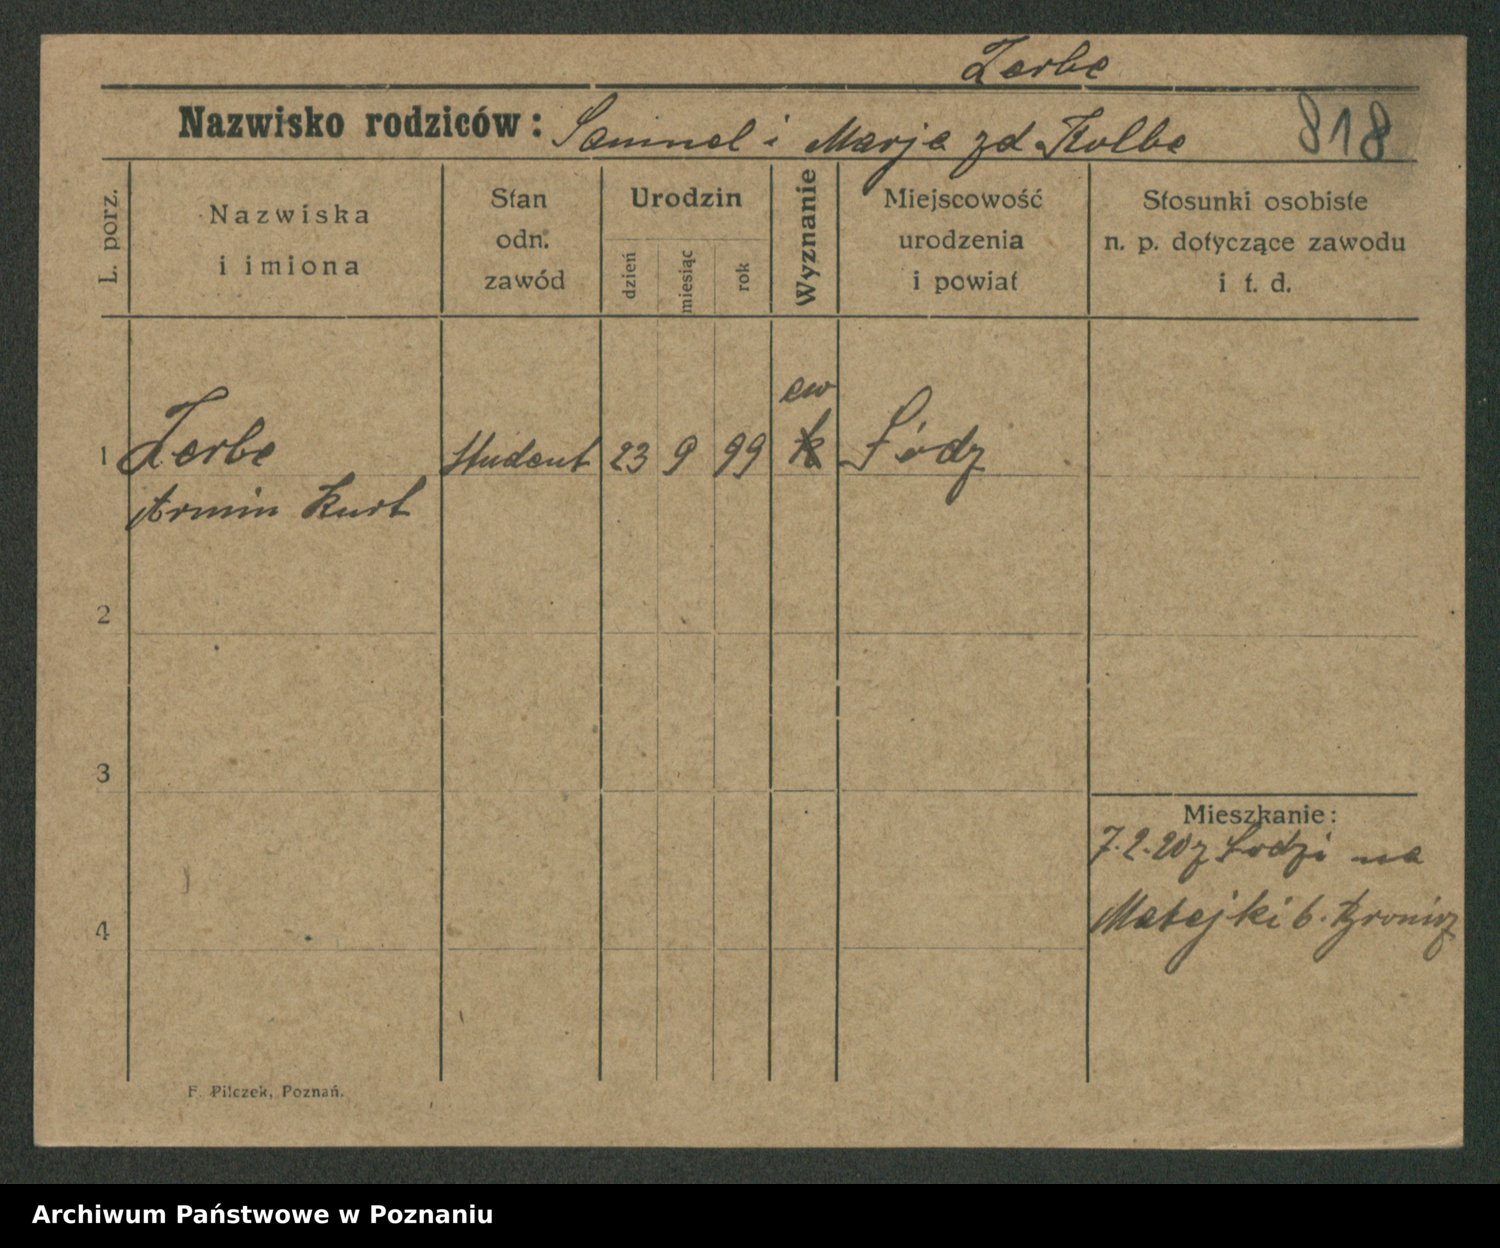 Zerbe
Nazwisko rodziców: Samuel i Marja zd Kolbe
818
L. porz.
Nazwiska
i imiona
Stan
odn.
zawód
Urodzin
dzień
miesiąc
rok
Wyznanie
Miejscowość
urodzenia
i powiat
Stosunki osobiste
n. p. dotyczące zawodu
i t. d.
ew
1 Zerbe student 23 9 99 k Łódz
Armin Kurt
2
3
Mieszkanie:
7.2.20 z Lodzi na
4
Matejki 6.
F. Pilczek, Poznań.
Archiwum Państwowe w Poznaniu